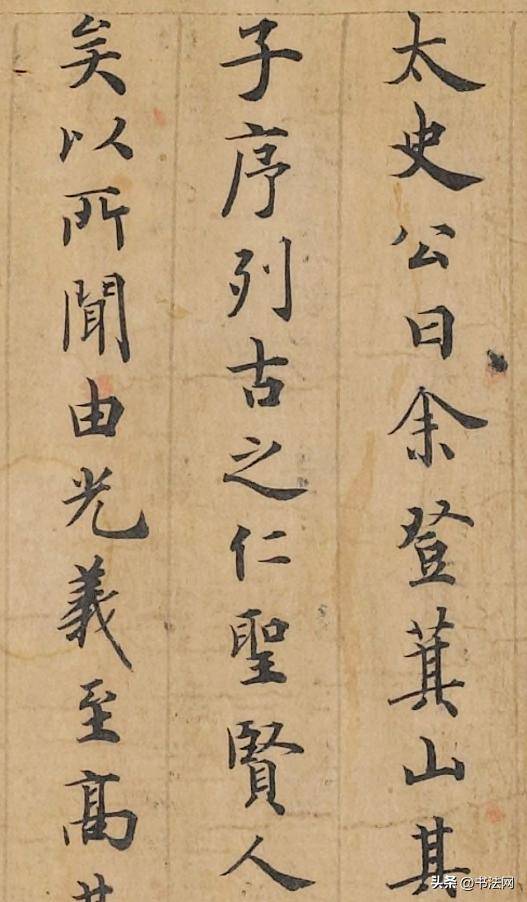 太史公曰余登萁山其
子序列古之仁聖賢人
矣以所聞由光義至髙其
头条 @书法网